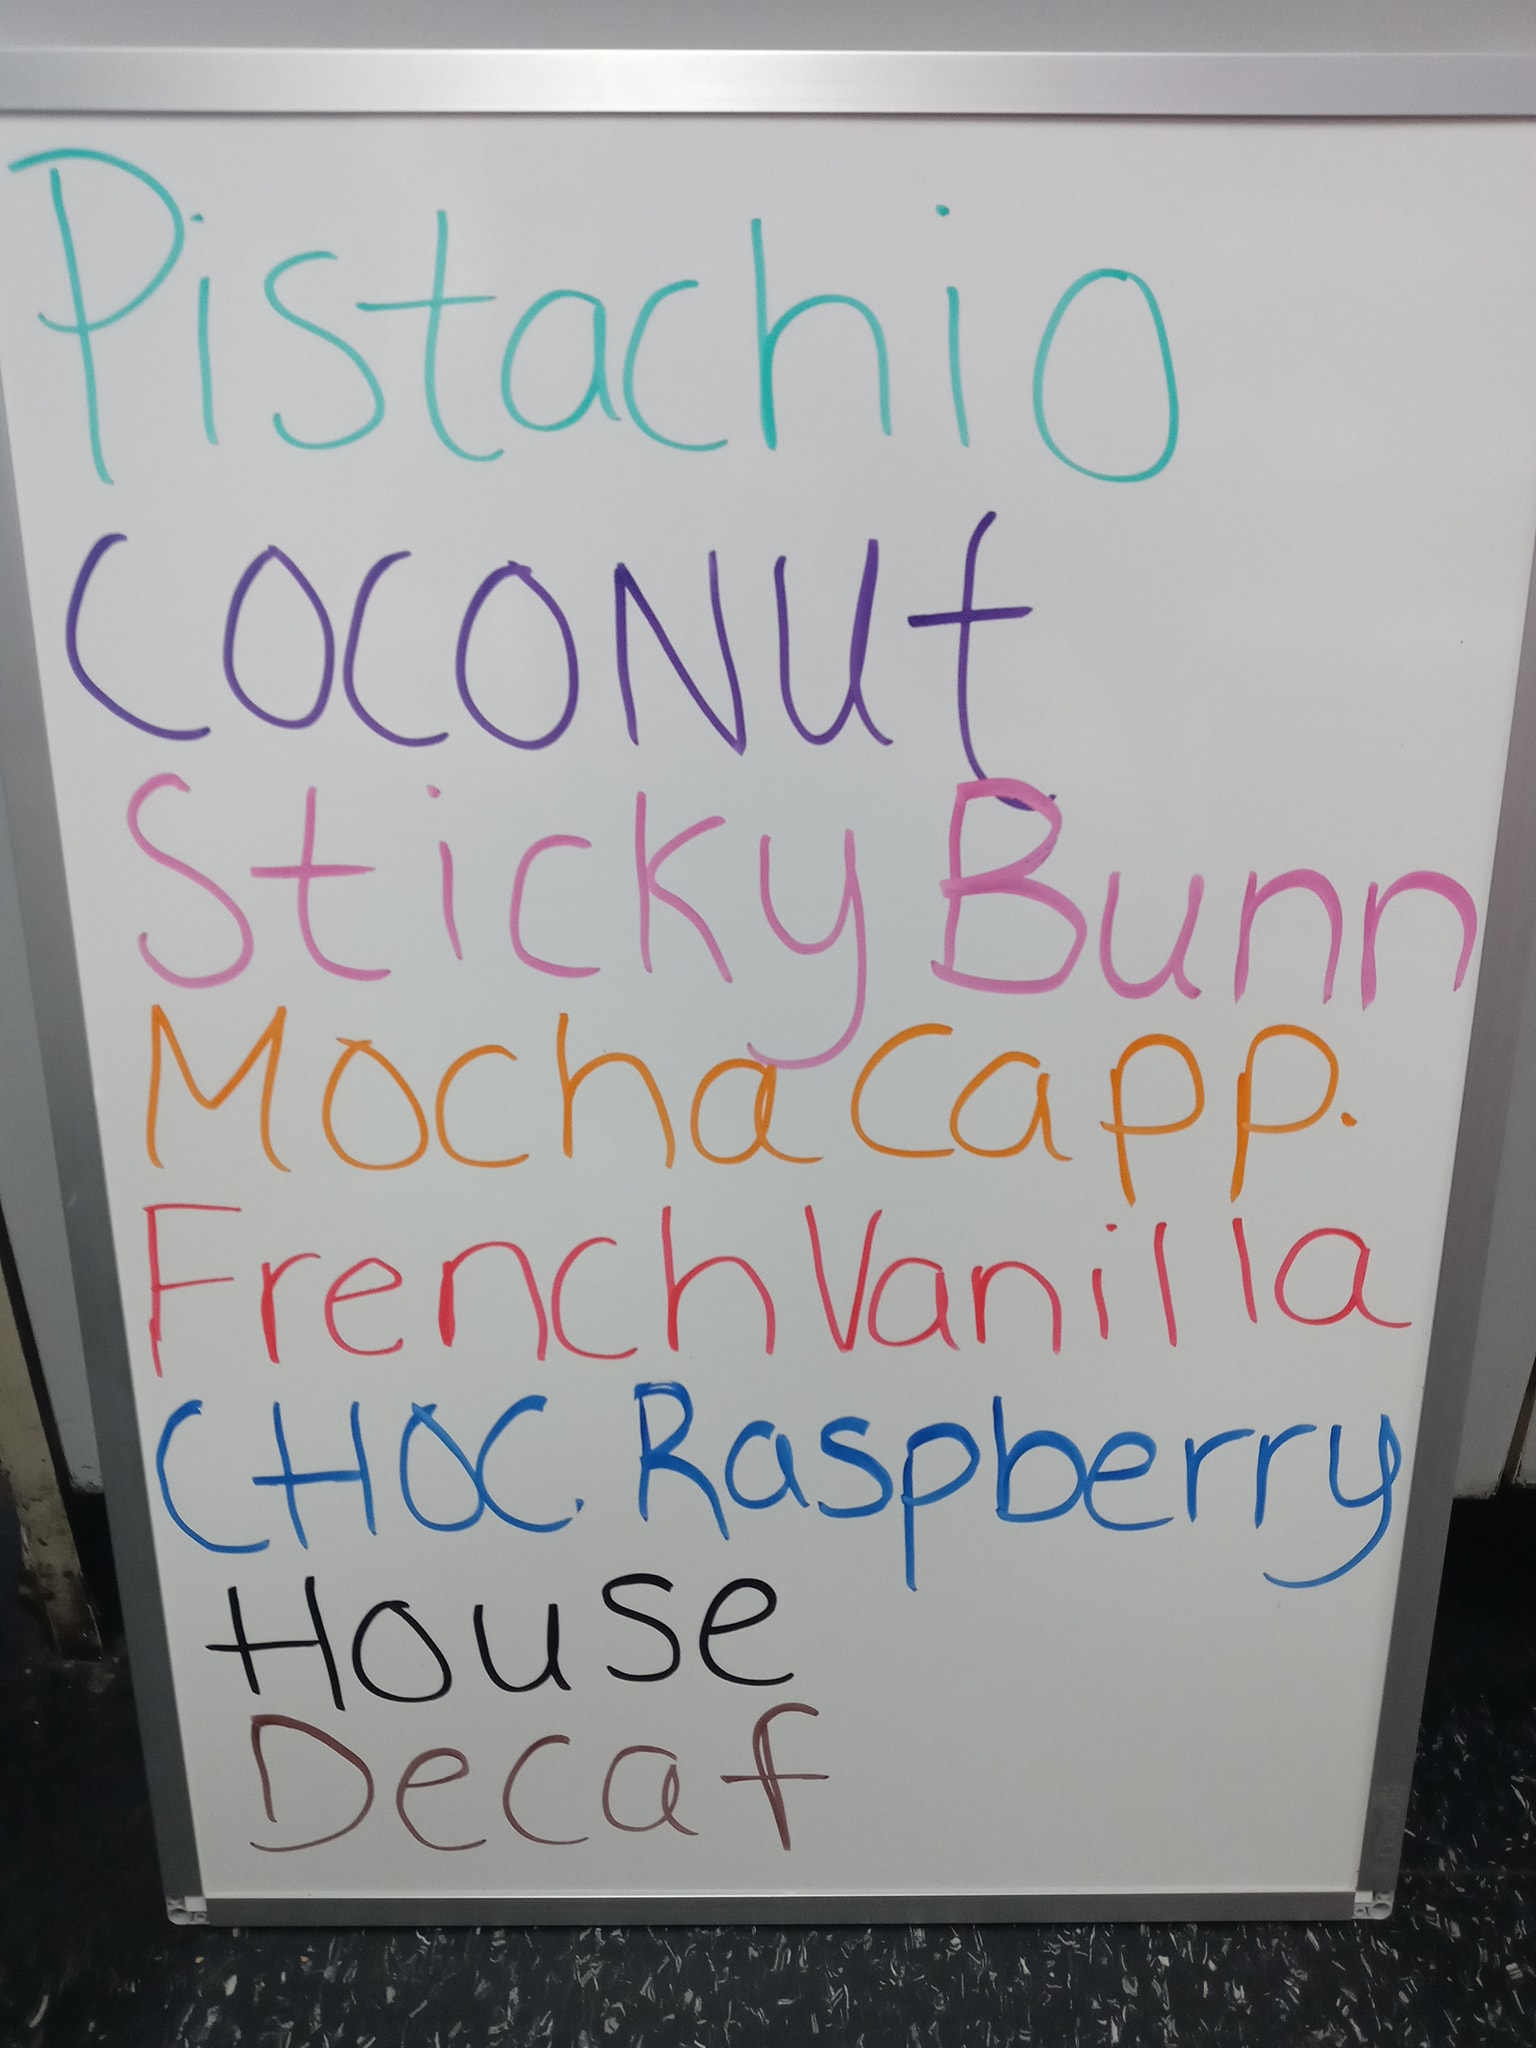 Pistachio
COCONUt
Sticky Bunn
Mocha Capp.
French Vanilla
CHOC. Raspberry
House
Decaf